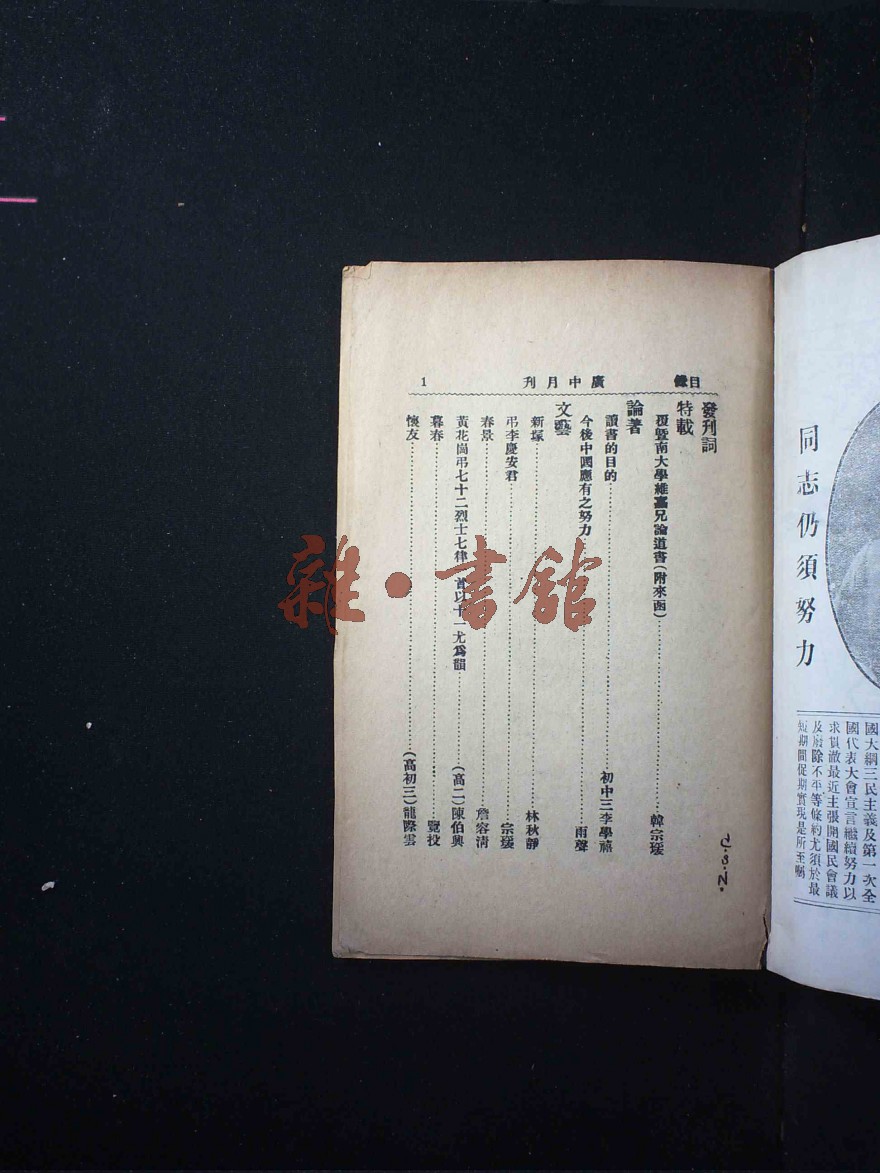 同志仍須努力
國大綱三民主義及第一次全
國代表大會宣言繼續努力以
求貫澈最近主張開國民會議
及廢除不平等條約尤須於最
短期間促期實現是所至囑
目錄
廣中月刊
1
發刊詞
特載
覆暨南大學維嘉兄論道書(附來函)……韓宗琰
論著
讀書的目的……初中三李學禧
今後中國應有之努力……雨聲
文藝
新塚……林秋靜
弔李慶安君……宗琰
春景……詹容清
黃花崗弔七十二烈士七律 首以十一尤爲韻……(高二)陳伯興
暮春……覽投
懷友……(高初三)龍際雲
J.S.N.
雜·書館